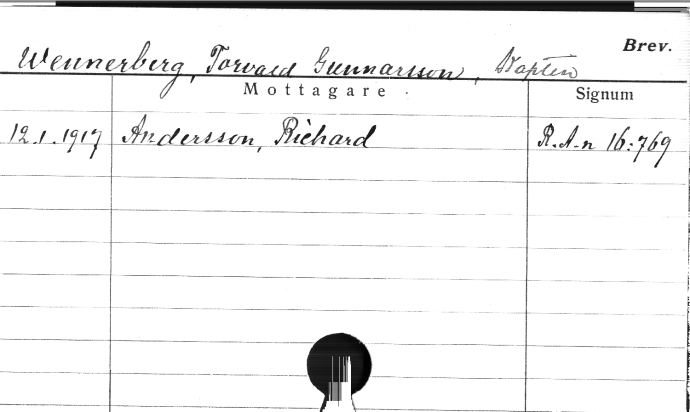 Brev.
Wennerberg, Torvald Gunnarsson, Kapten
Mottagare. Signum
12.1.1917 Andersson, Richard R.A-n 16:769